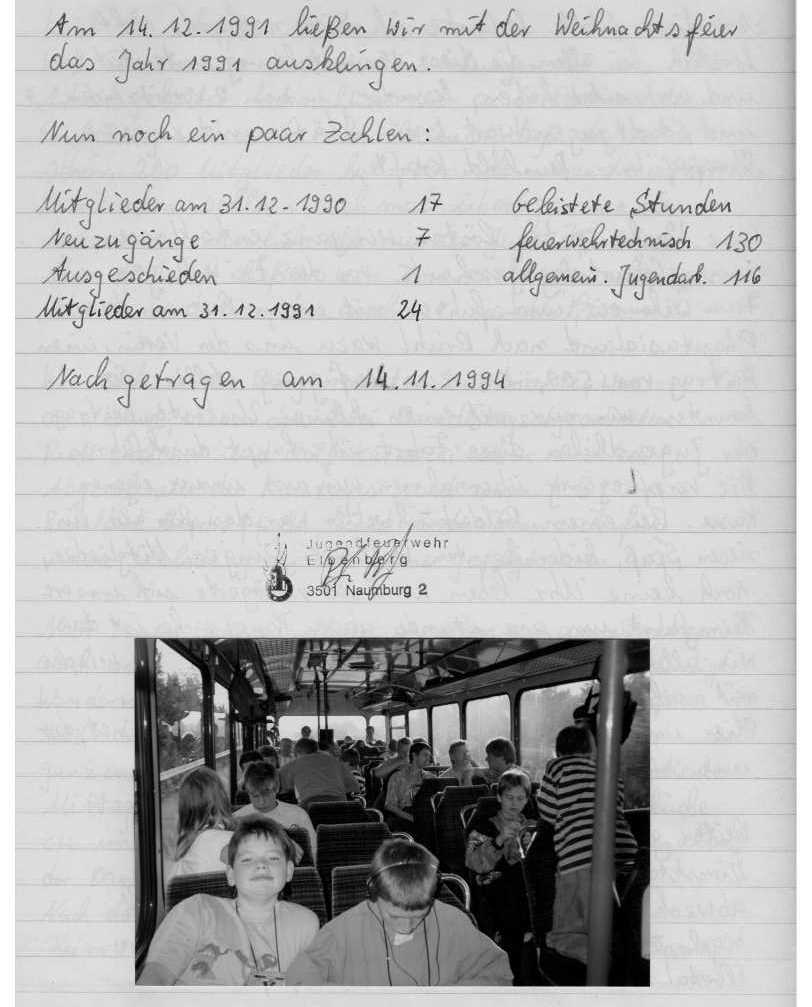 Am 14.12.1991 ließen wir mit der Weihnachtsfeier
das Jahr 1991 ausklingen.
Nun noch ein paar Zahlen:
Mitglieder am 31.12.1990 17 Geleistete Stunden
Neuzugänge 7 feuerwehrtechnisch 130
Ausgeschieden 1 allgemein. Jugendarb. 116
Mitglieder am 31.12.1991 24
Nach getragen am 14.11.1994
Jugendfeuerwehr
Elbenberg
3501 Naumburg 2